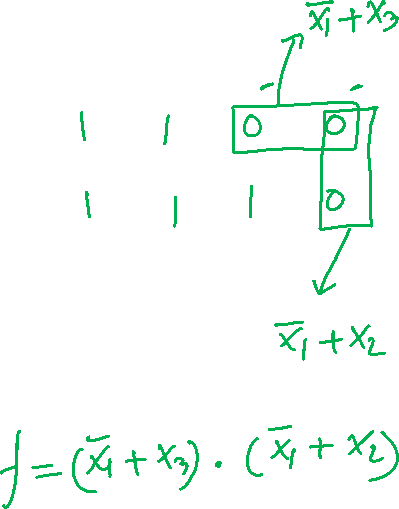 x̅₁ + x₃
1 1 0 0
1 1 1 0
x̅₁ + x₂
f = (x̅₁ + x₃) · (x̅₁ + x₂)